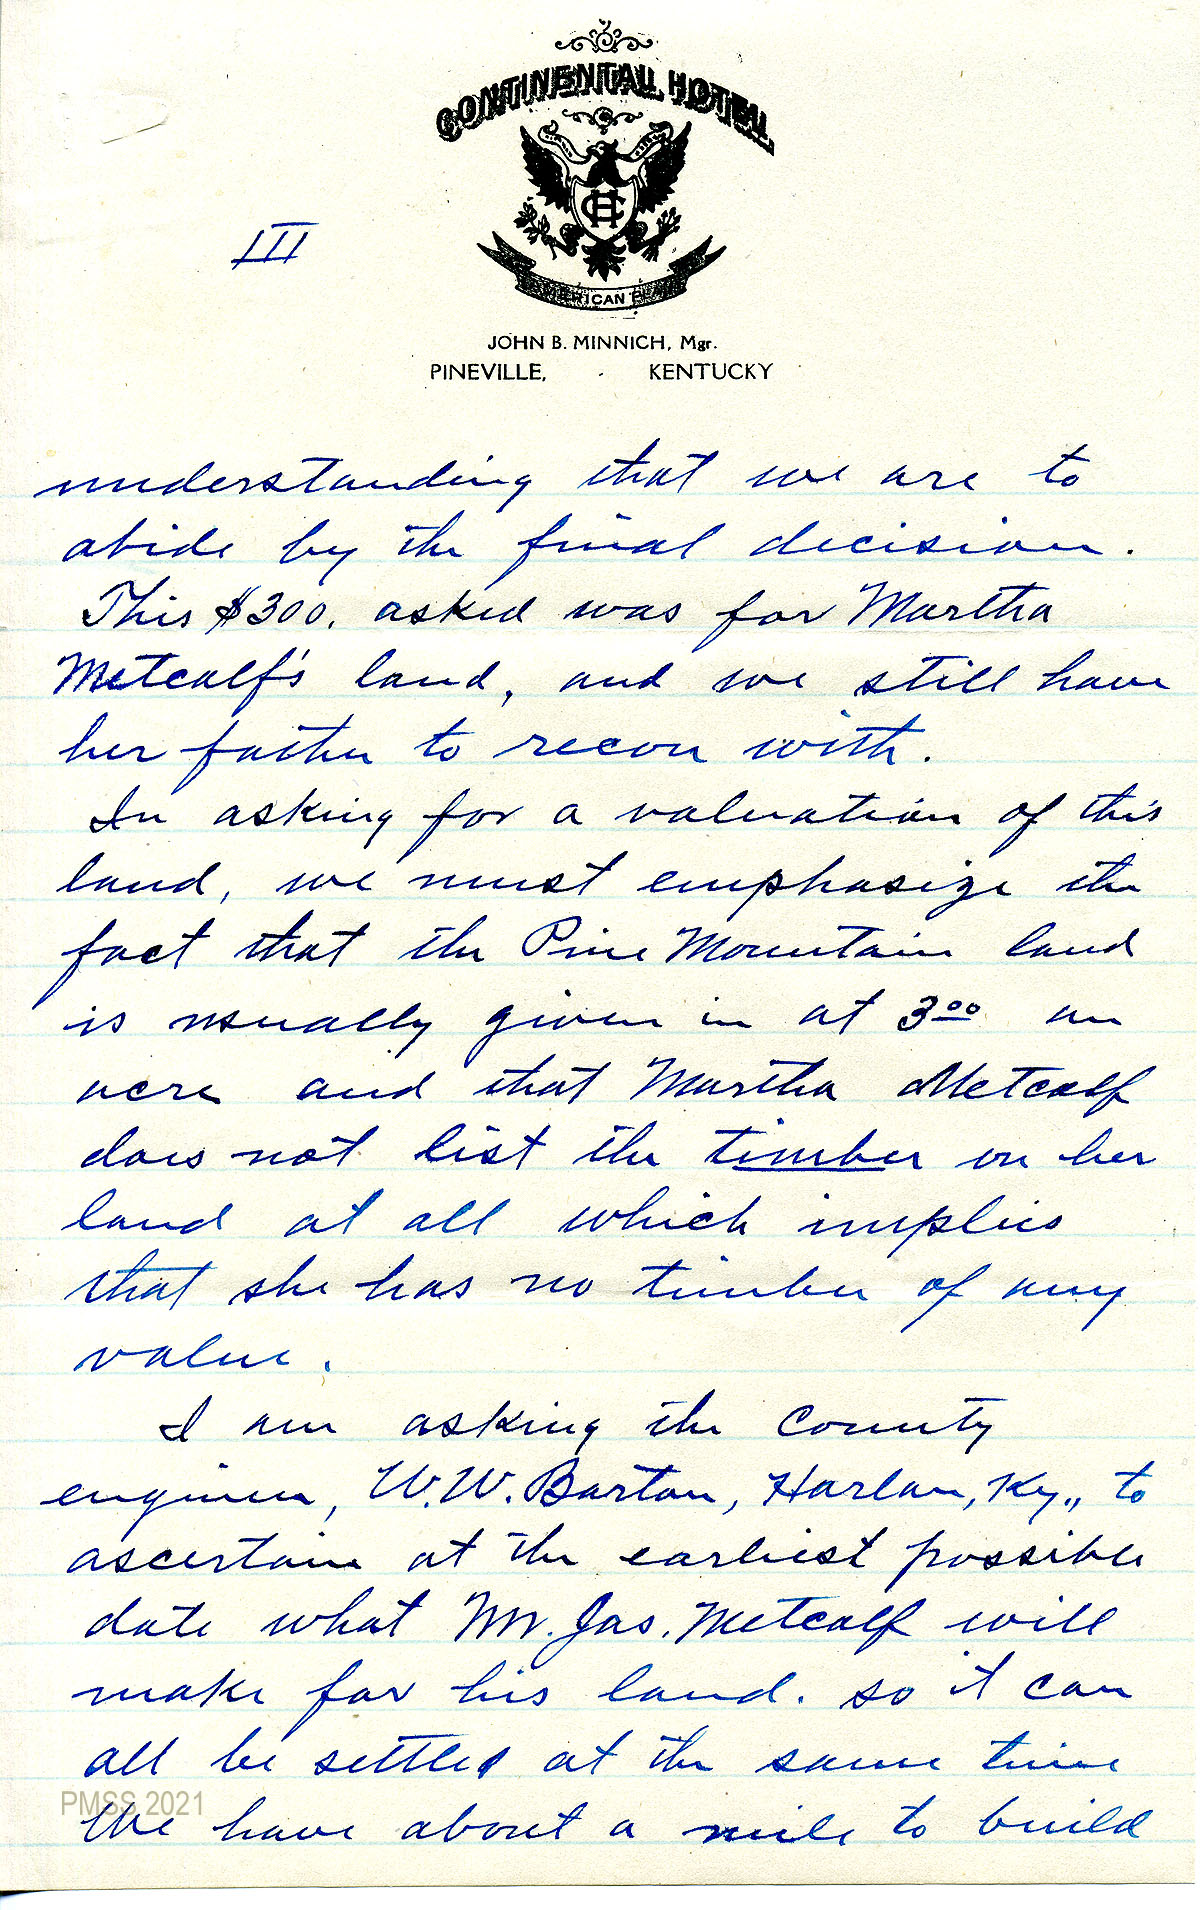 CONTINENTAL HOTEL
HC
AMERICAN PLAN
JOHN B. MINNICH, Mgr.
PINEVILLE, - KENTUCKY
III
understanding that we are to
abide by the final decision.
This $300. asked was for Martha
Metcalf's land, and we still have
her father to recon with.
In asking for a valuation of this
land, we must emphasize the
fact that the Pine Mountain land
is usually given in at 3.00 an
acre and that Martha Metcalf
does not list the timber on her
land at all which implies
that she has no timber of any
value.
I am asking the County
engineer, W.W. Barton, Harlan, Ky., to
ascertain at the earliest possible
date what Mr. Jas. Metcalf will
make for his land. so it can
all be settled at the same time
We have about a mile to build
PMSS 2021